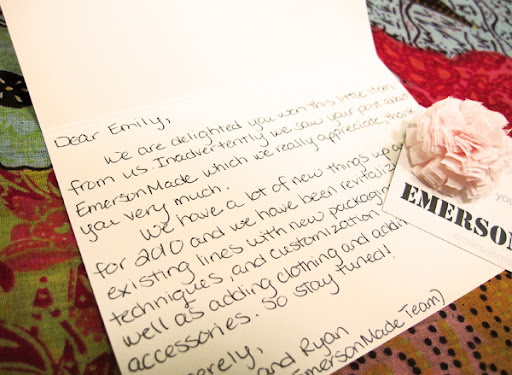 Dear Emily,
We are delighted you won this little item
from us. Inadvertently we saw your post about
EmersonMade which we really appreciate. Thank
you very much.
We have a lot of new things up
for 2010 and we have been
existing lines with new
techniques and customization
well as adding clothing and
accessories. So stay tuned!
and Ryan
EmersonMade Team)
you
EMERSON